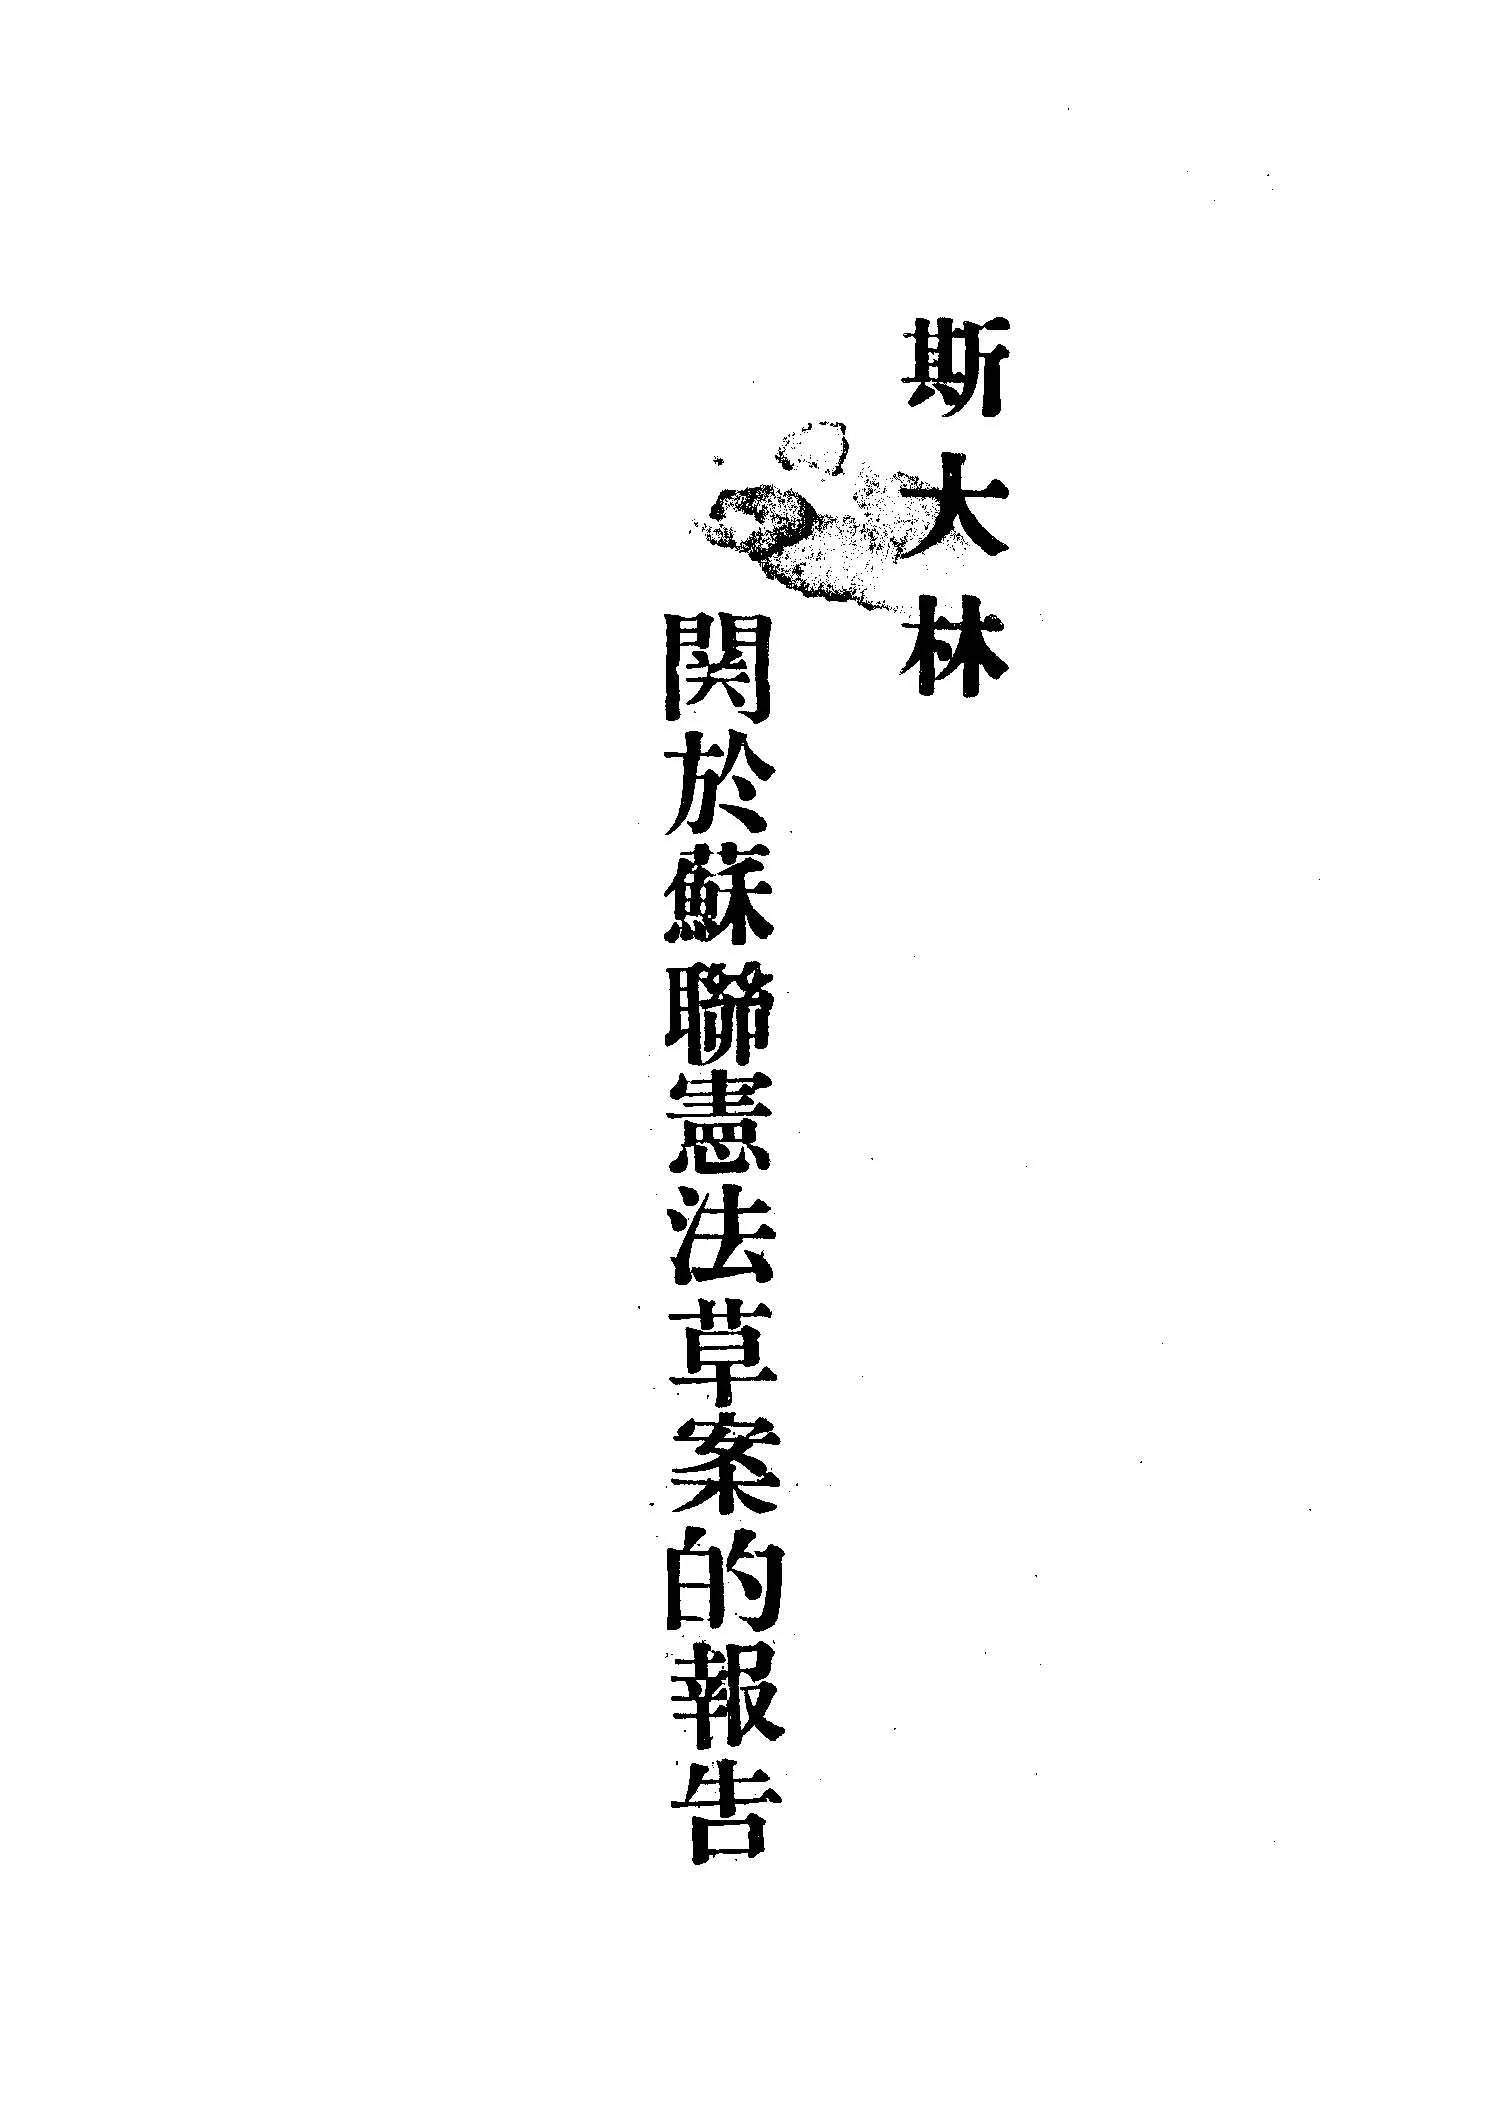 斯大林
関於蘇聯憲法草案的報告